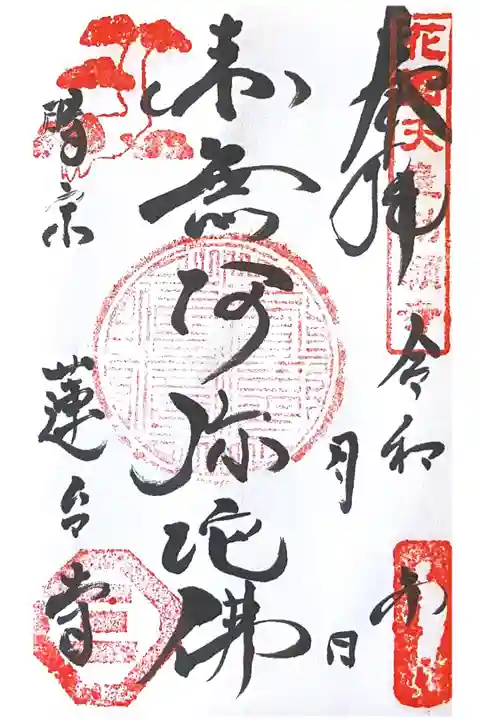 奉拝
令和 年
月 日
南無阿弥陀佛
時宗 蓮台寺